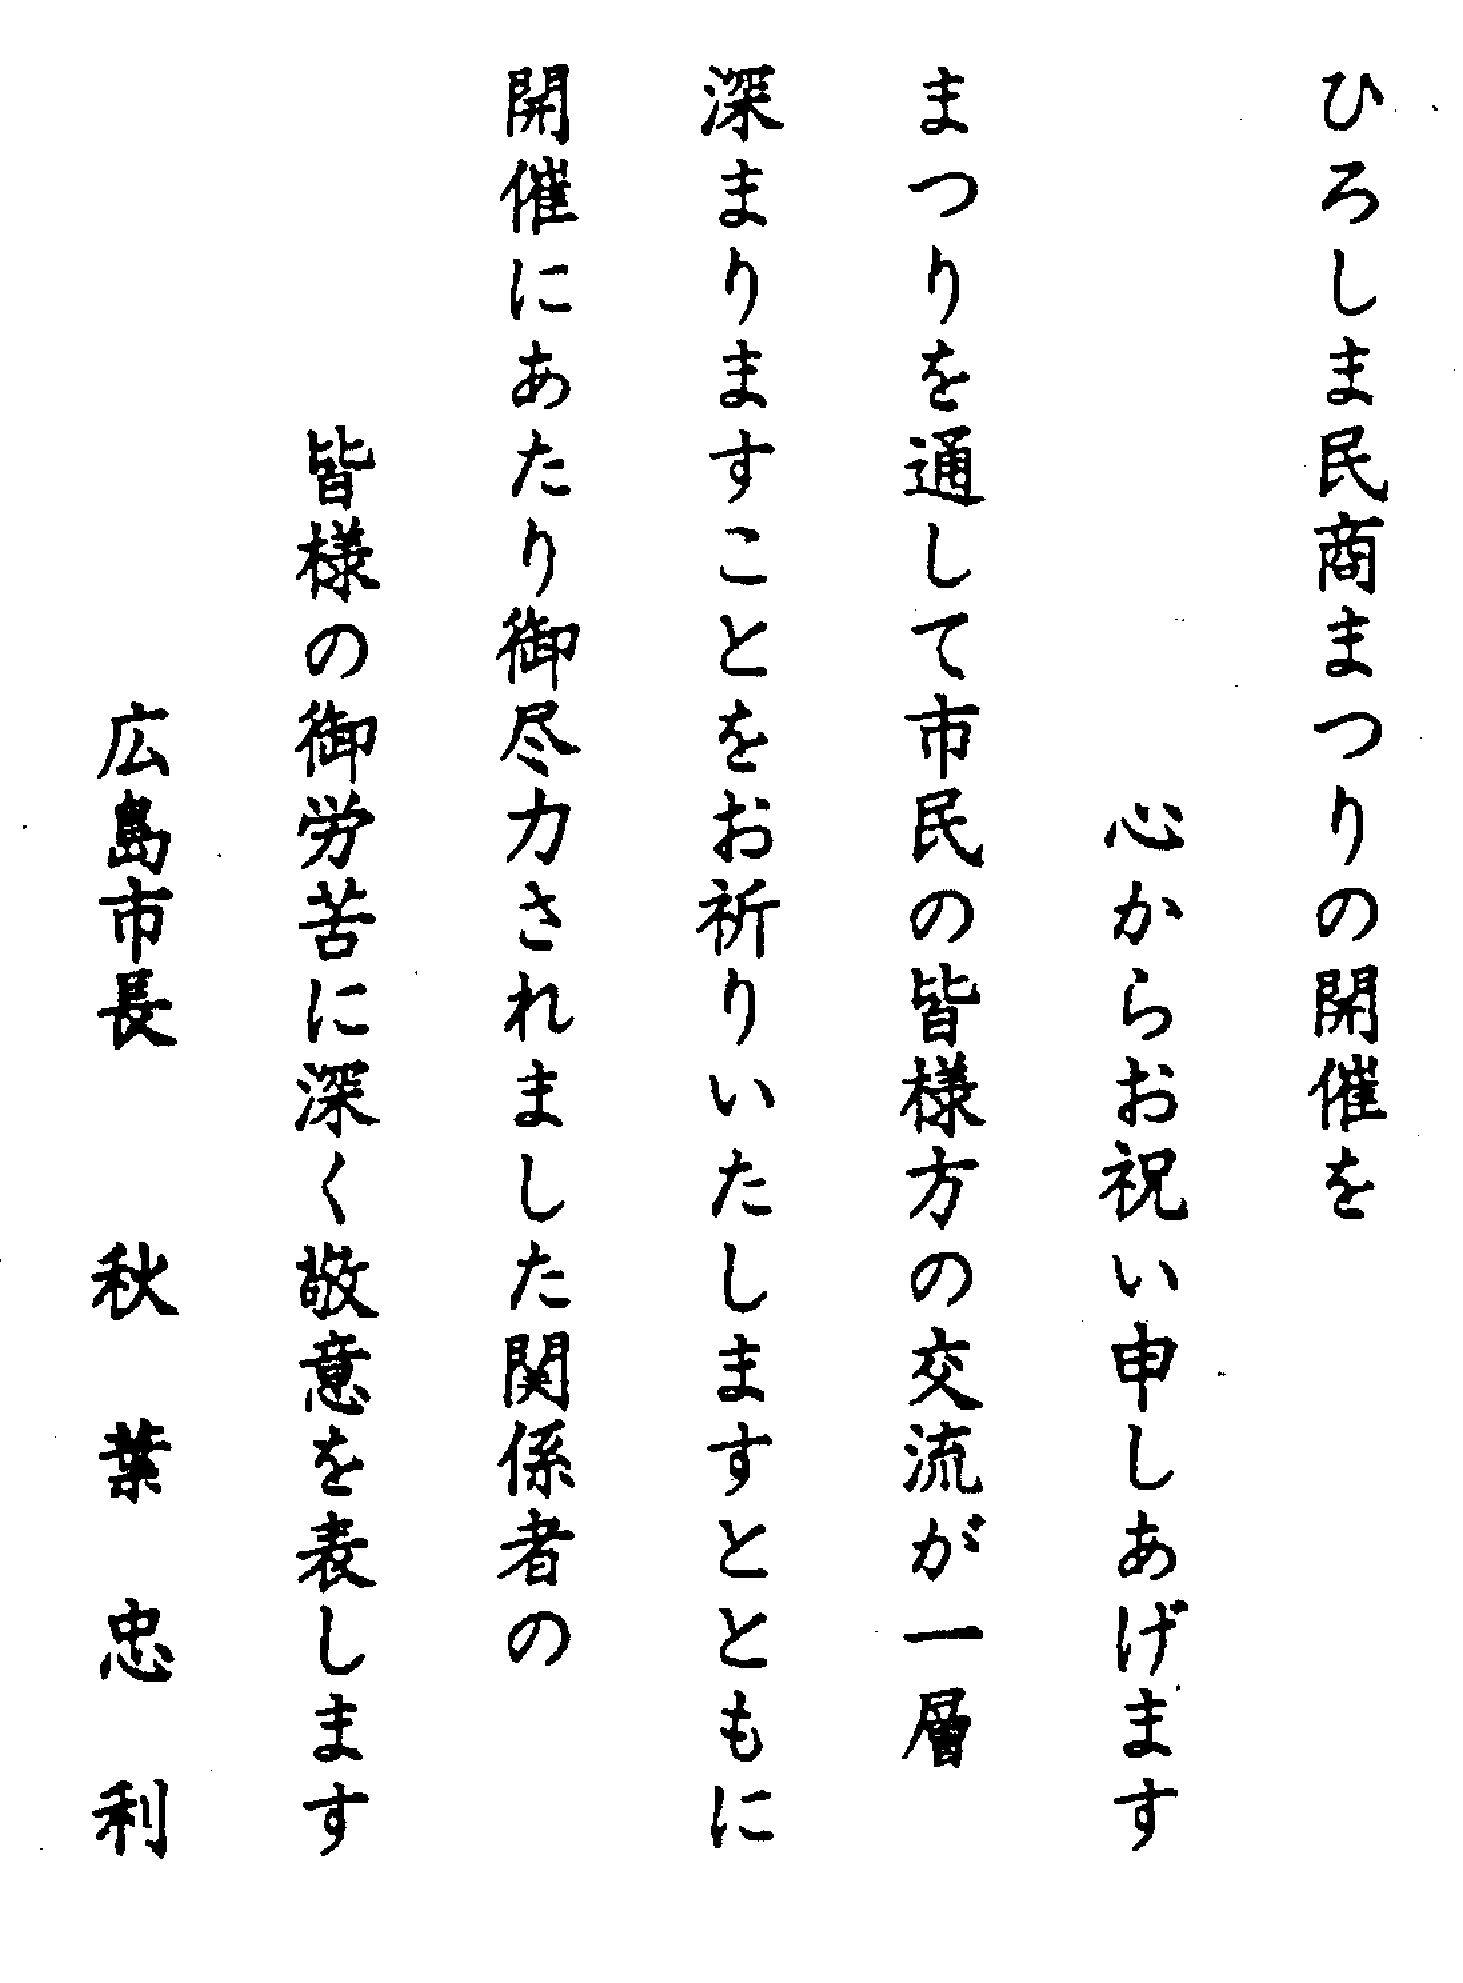 ひろしま民商まつりの開催を
心からお祝い申しあげます
まつりを通して市民の皆様方の交流が一層
深まりますことをお祈りいたしますとともに
開催にあたり御尽力されました関係者の
皆様の御労苦に深く敬意を表します
広島市長　秋葉忠利